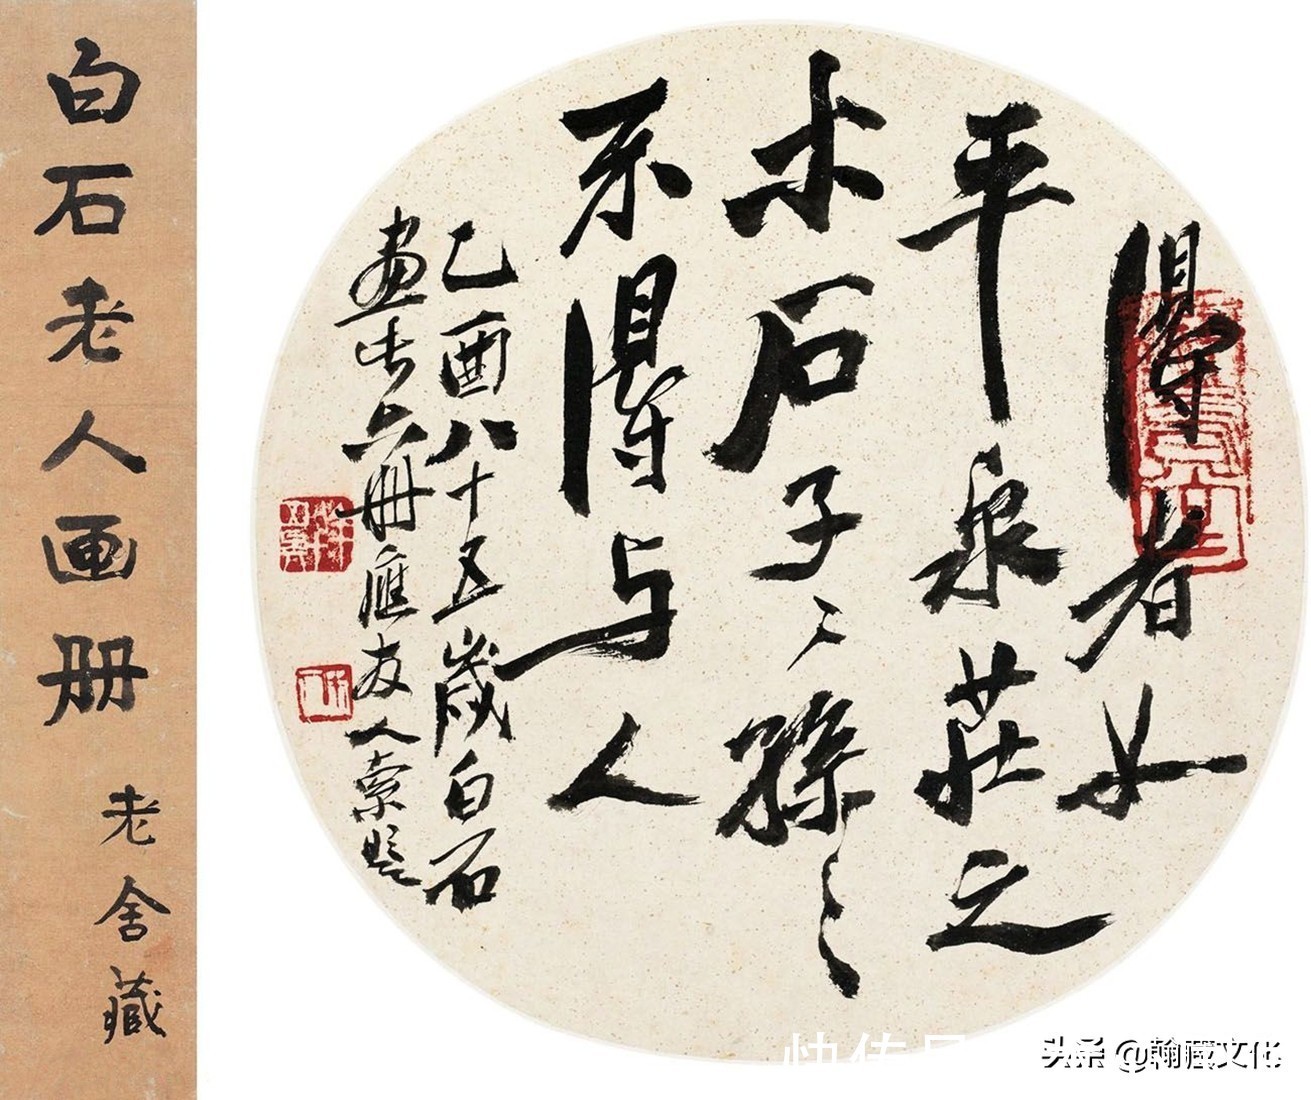 白石老人画册
老舍藏
得者如
平泉莊之
木石子〻孫〻
不得与人
乙酉八十五歲白石
畫虫六册應友人索題
头条 @翰藏文化